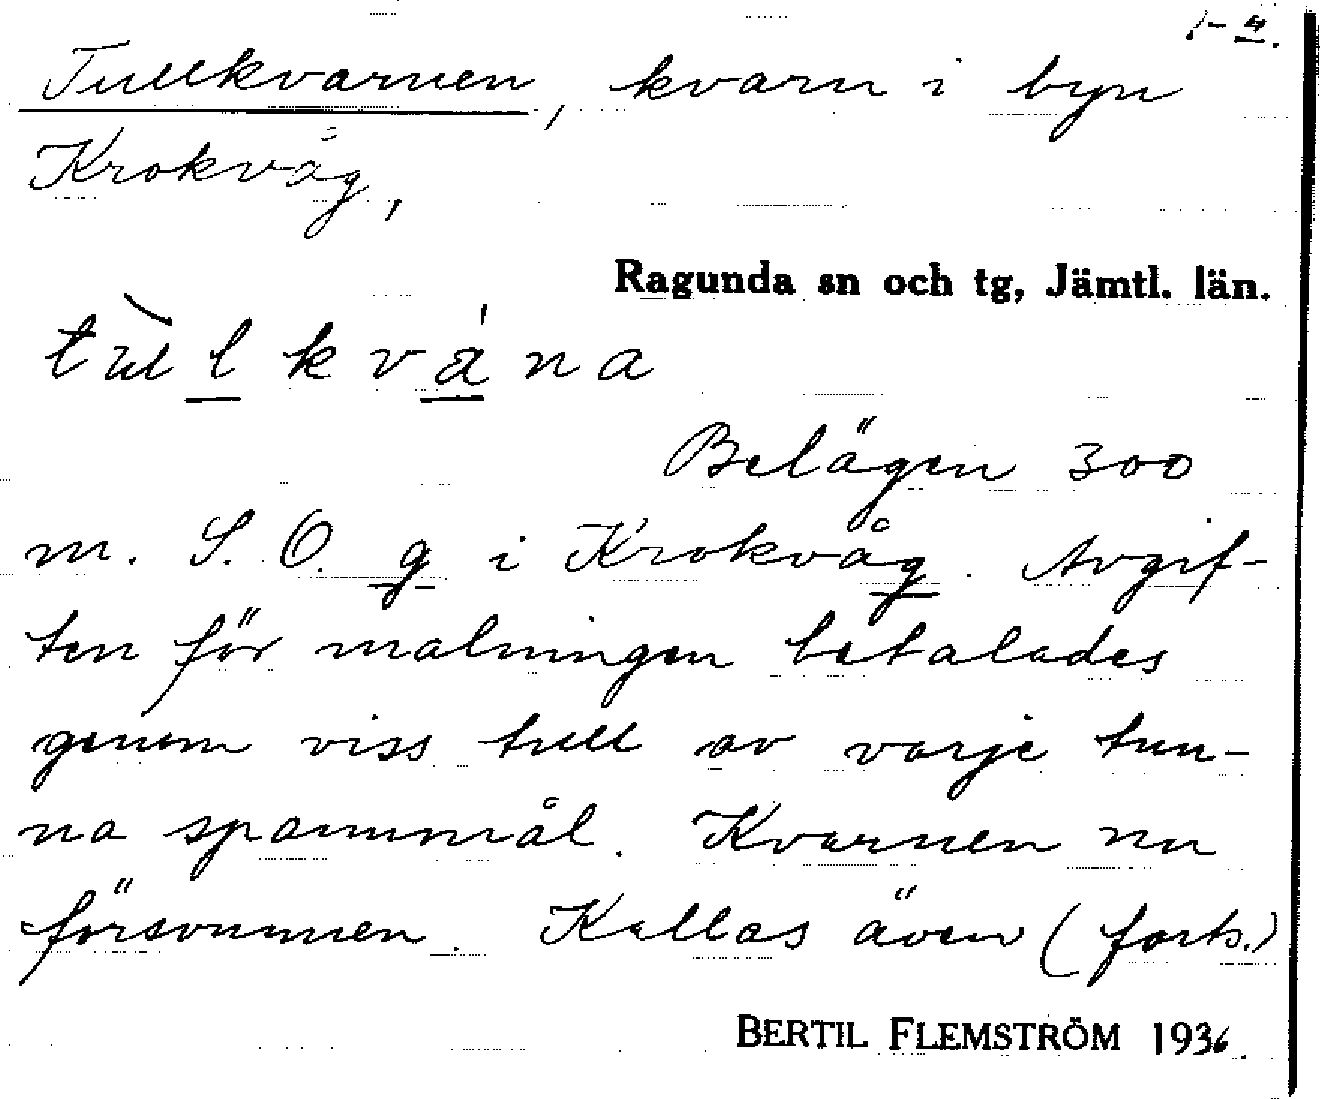 1-4.
Tullkvarnen, kvarn i byn
Krokvåg,
Ragunda sn och tg, Jämtl. län.
tùlkvána
Belägen 300
m. S. O. g i Krokvåg. Avgif-
ten för malningen betalades
genom viss tull av varje tun-
na spannmål. Kvarnen nu
försvunnen. Kallas även (forts.)
BERTIL FLEMSTRÖM 1936.